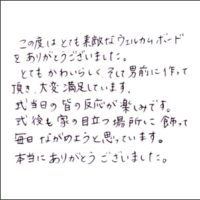 この度はとても素敵なウェルカムボード
をありがとうございました。
とてもかわいらしく そして男前に作って
頂き、大変満足しています。
式当日の皆の反応が楽しみです。
式後も家の目立つ場所に飾って
毎日ながめようと思っています。
本当にありがとうございました。